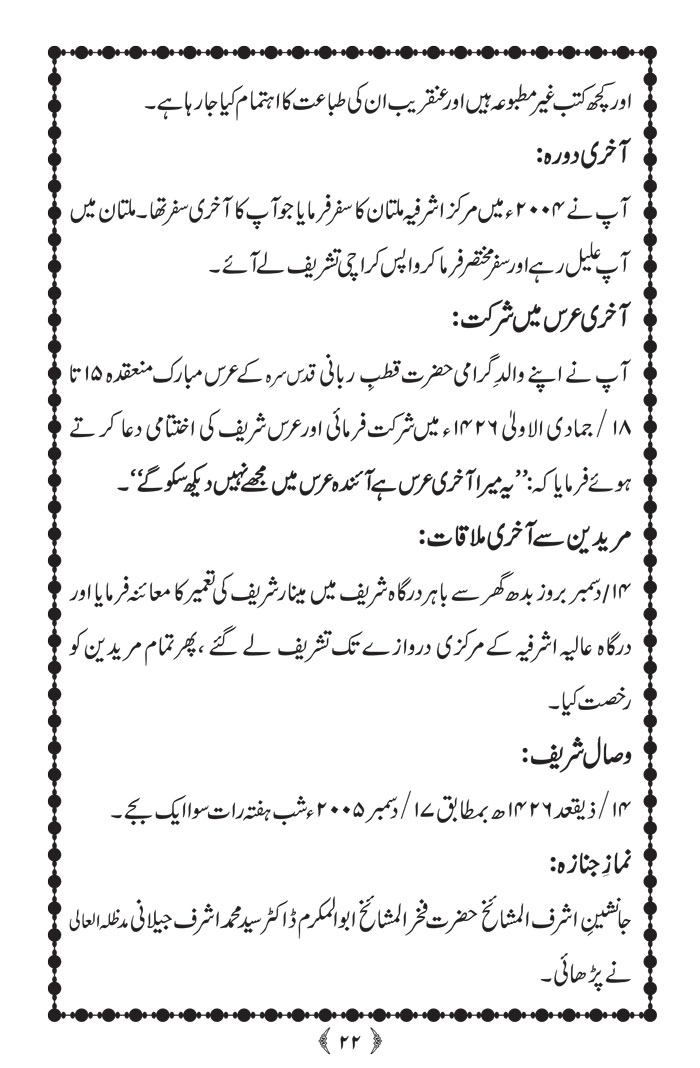 اور کچھ کتب غیر مطبوعہ ہیں اور عنقریب ان کی طباعت کا اہتمام کیا جا رہا ہے۔
آخری دورہ:
آپ نے ۲۰۰۴ء میں مرکز اشرفیہ ملتان کا سفر فرمایا جو آپ کا آخری سفر تھا۔ ملتان میں
آپ علیل رہے اور سفر مختصر فرما کر واپس کراچی تشریف لے آئے۔
آخری عرس میں شرکت:
آپ نے اپنے والدِ گرامی حضرت قطبِ ربانی قدس سرہ کے عرس مبارک منعقدہ ۱۵ تا
۱۸ / جمادی الاولیٰ ۱۴۲۶ء میں شرکت فرمائی اور عرس شریف کی اختتامی دعا کرتے
ہوئے فرمایا کہ: ”یہ میرا آخری عرس ہے آئندہ عرس میں مجھے نہیں دیکھ سکو گے“۔
مریدین سے آخری ملاقات:
۱۴/دسمبر بروز بدھ گھر سے باہر درگاہ شریف میں مینار شریف کی تعمیر کا معائنہ فرمایا اور
درگاہ عالیہ اشرفیہ کے مرکزی دروازے تک تشریف لے گئے، پھر تمام مریدین کو
رخصت کیا۔
وصال شریف:
۱۴/ ذیقعد ۱۴۲۶ھ بمطابق ۱۷/ دسمبر ۲۰۰۵ء شب ہفتہ رات سوا ایک بجے۔
نمازِ جنازہ:
جانشینِ اشرف المشائخ حضرت فخر المشائخ ابوالمکرم ڈاکٹر سید محمد اشرف جیلانی مدظلہ العالی
نے پڑھائی۔
﴿ ۲۲ ﴾